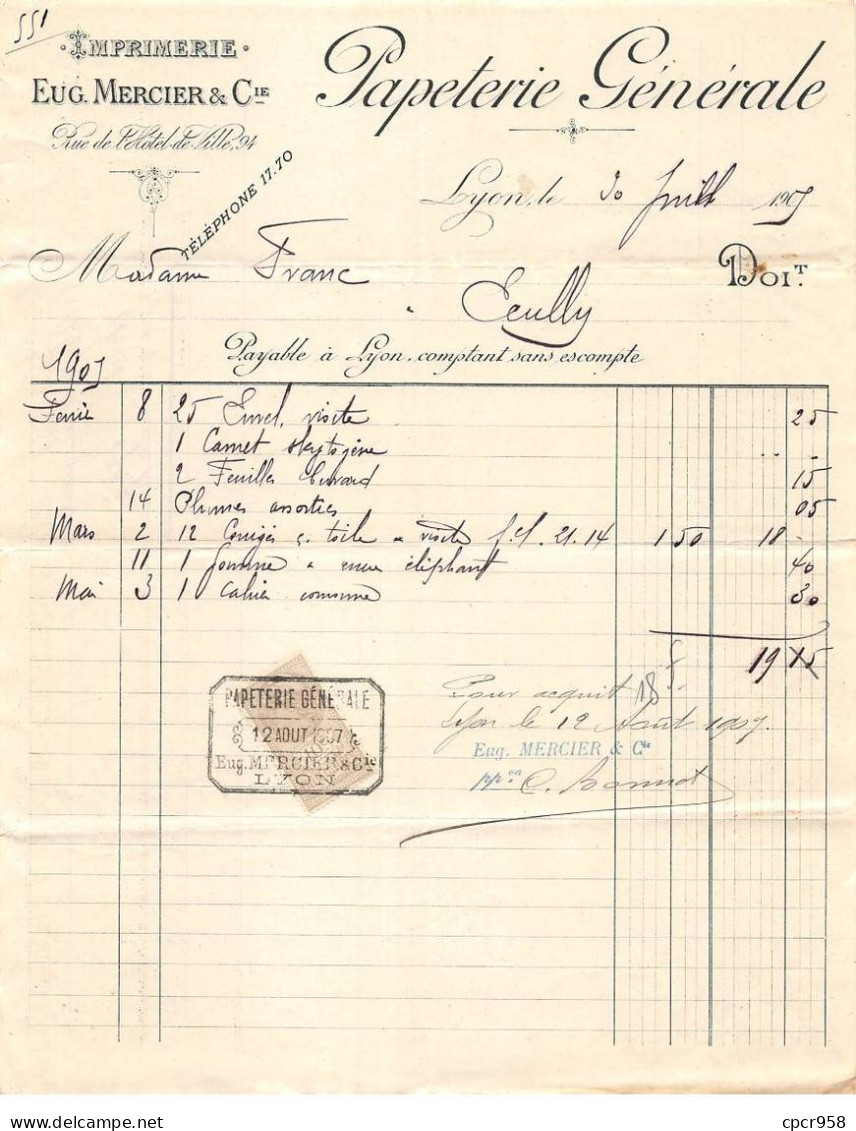 551
IMPRIMERIE
EUG. MERCIER & CIE
Rue de l'Hôtel-de-Ville, 94
TÉLÉPHONE 17.70
Papeterie Générale
Lyon, le 30 Juill 1907
Madame Franc DOIT
à Ecully
Payable à Lyon, comptant sans escompte
1907
Fevrie 8 25 Envel. visite 25
1 Carnet
2 Feuilles buvard 15
14 Plumes assorties 05
Mars 2 12 toile visite 21.14 1 50 18 -
11 1 Gomme éléphant 40
Mai 3 1 Cahier 30
19 15
18 f.
Pour acquit
Lyon le 12 Août 1907.
Eug. MERCIER & Cie
ppon
PAPETERIE GÉNÉRALE
12 AOUT 1907
Eug. MERCIER & Cie
LYON
cpcr958